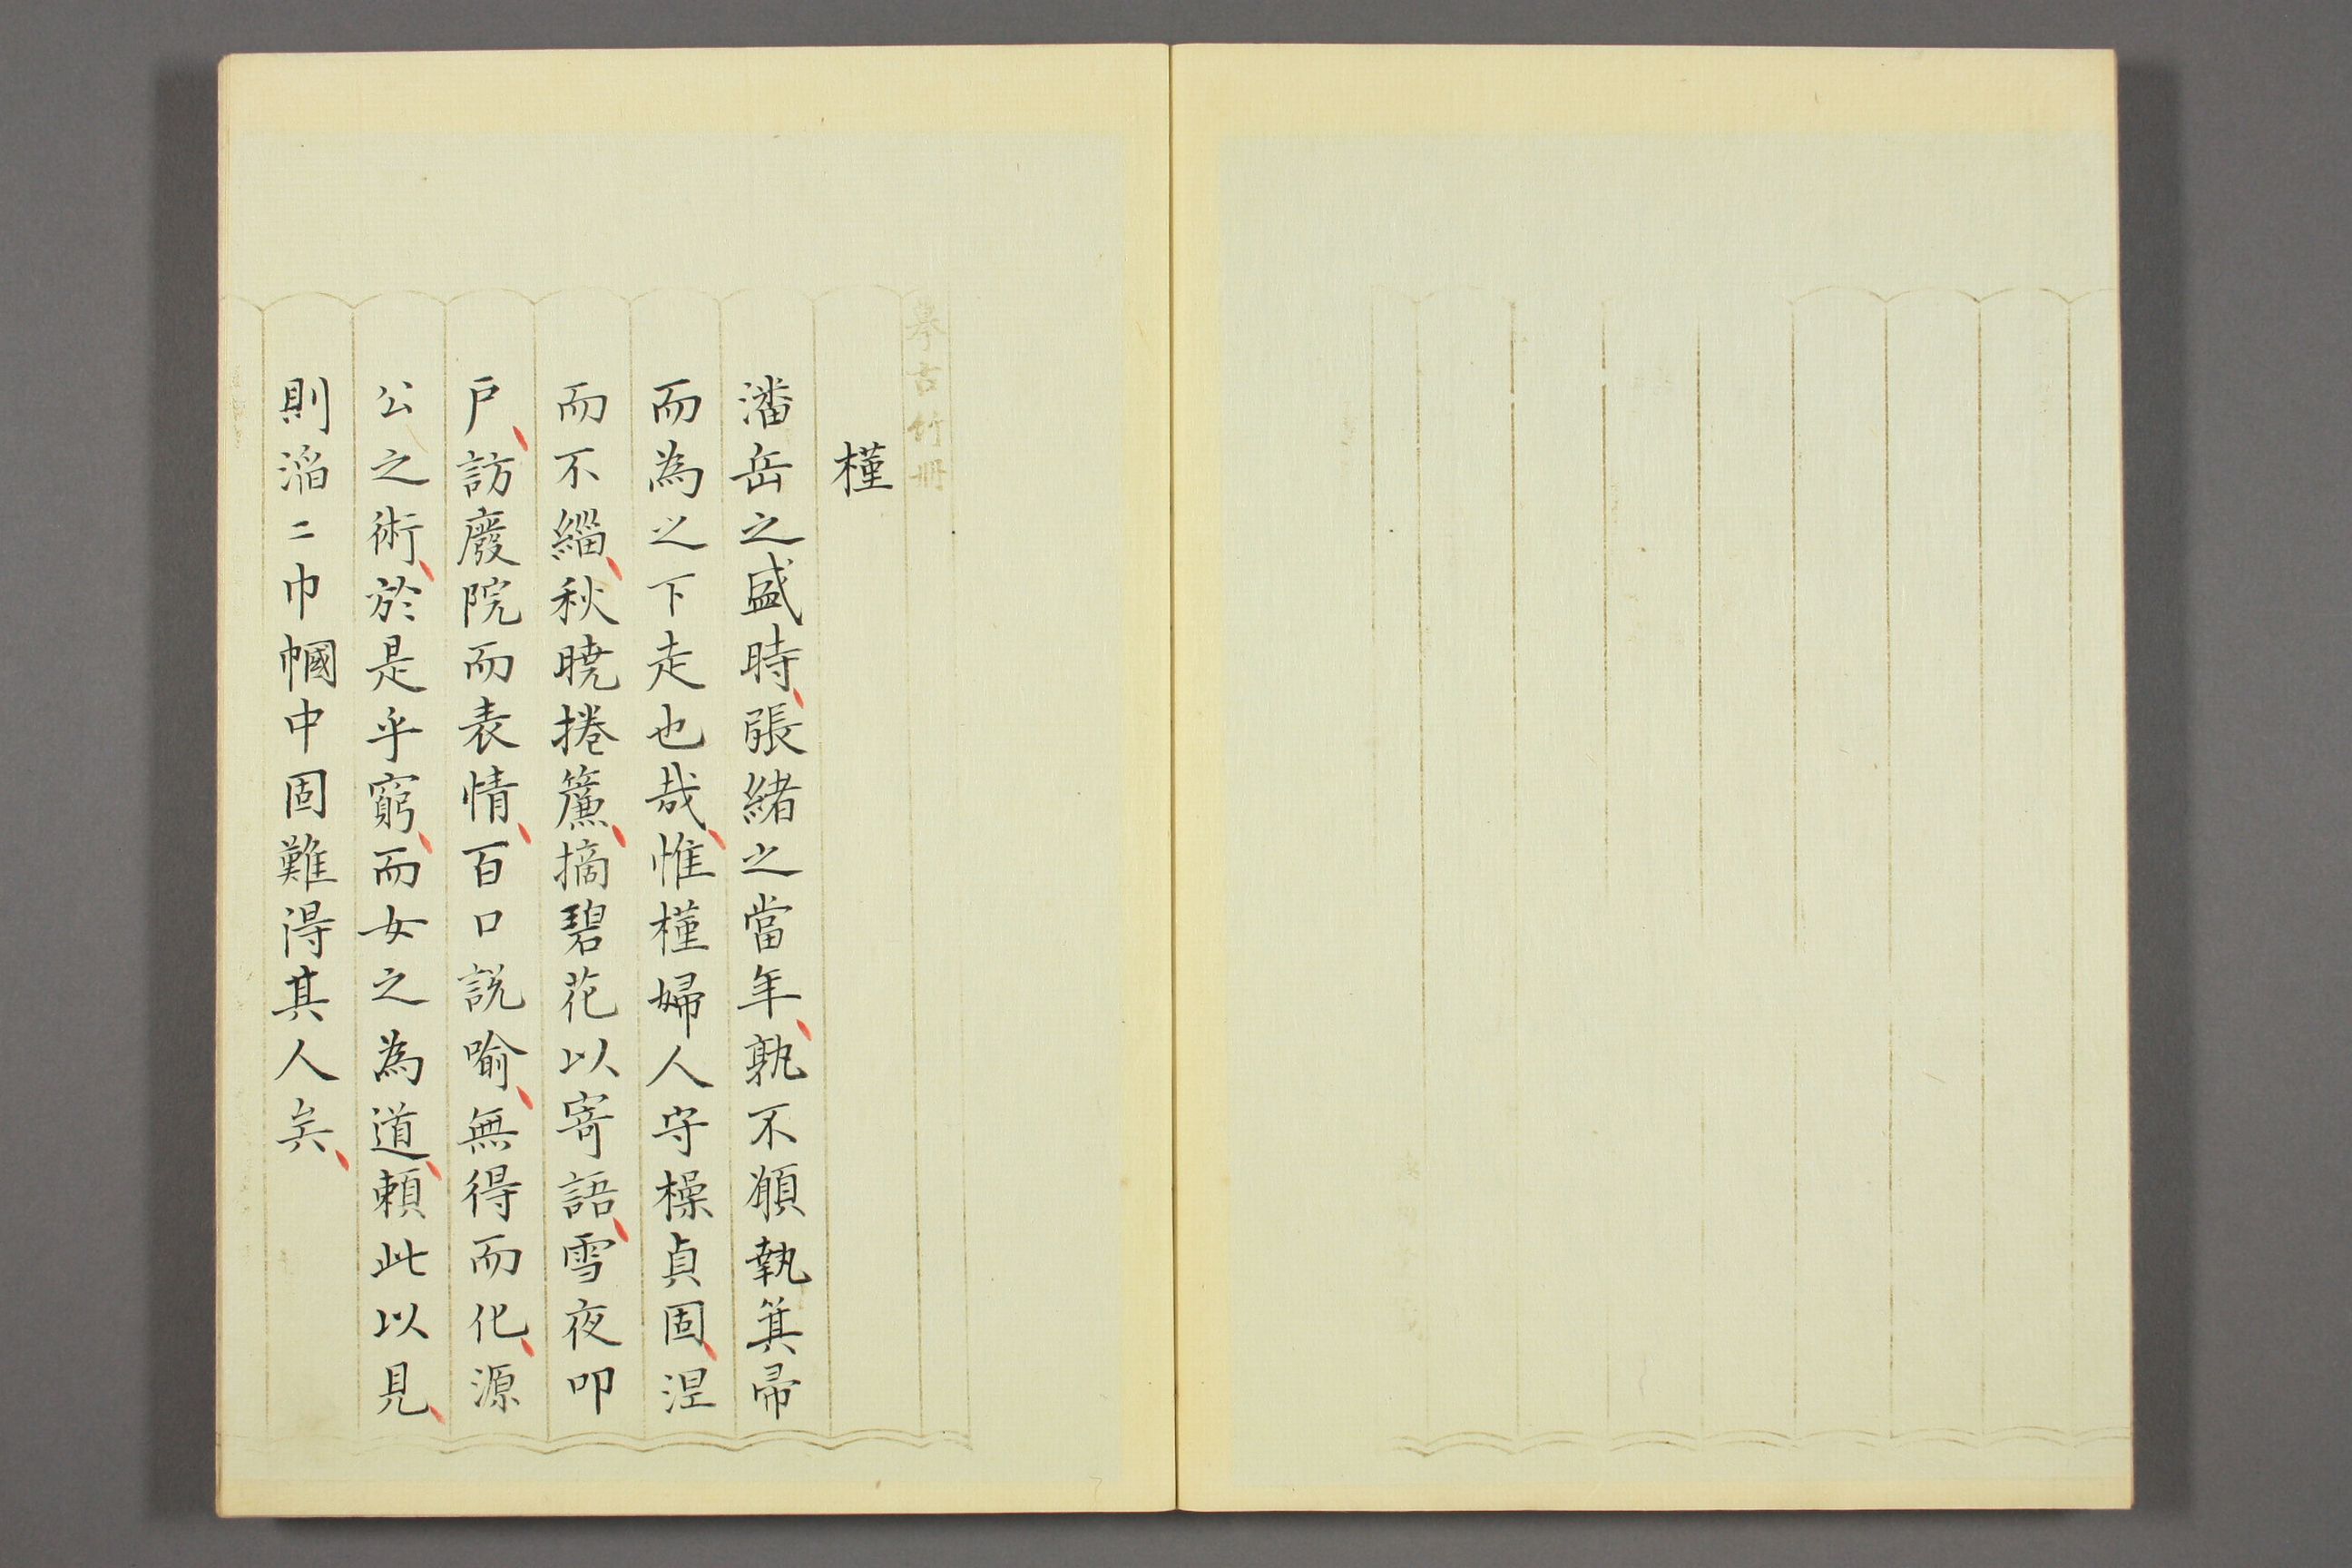 摹古竹冊
槿
潘岳之盛時、張緒之當年、孰不願執箕帚
而為之下走也哉、惟槿婦人守操貞固、涅
而不緇、秋曉捲簾、摘碧花以寄語、雪夜叩
戶、訪廢院而表情、百口說喻、無得而化、源
公之術、於是乎窮、而女之為道、賴此以見、
則滔〻巾幗中固難得其人矣、